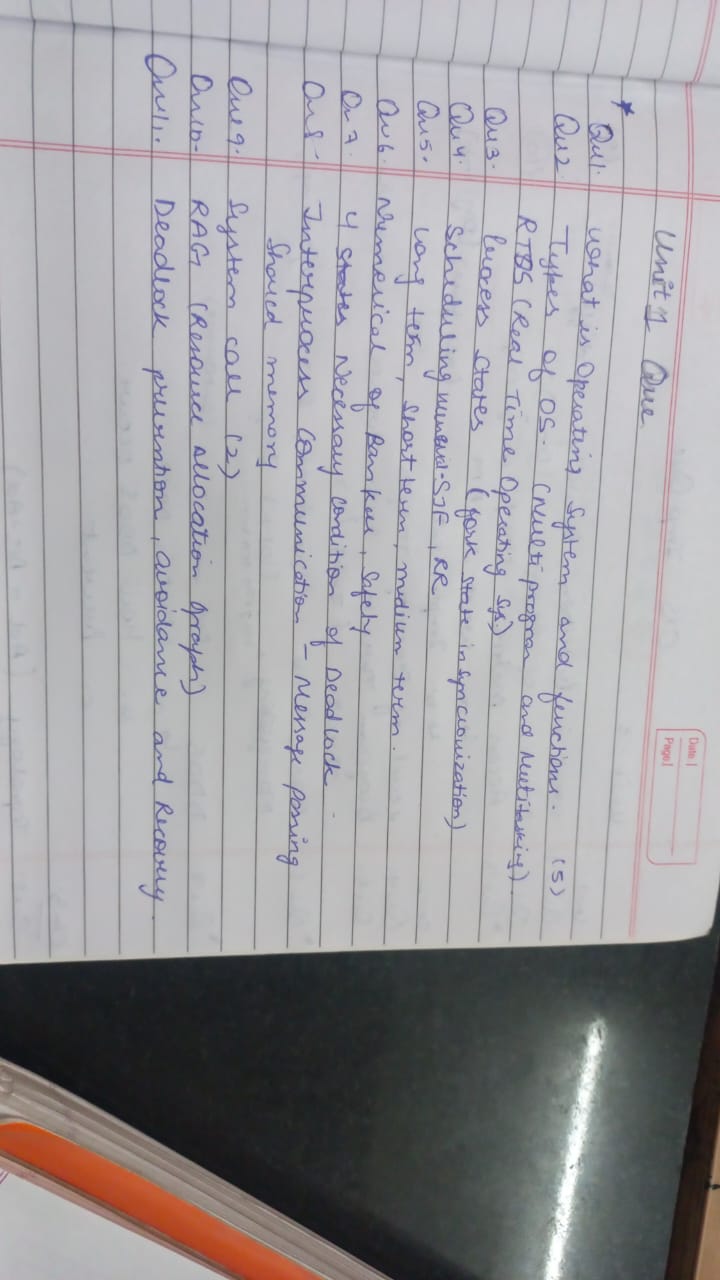 Date
Page
Unit 1 Que
* Qu1. What is Operating System and functions. (5)
Qu2. Types of OS. (Multi program and Multitasking).
RTOS (Real Time Operating Sys.)
Qu3. Process States (fork state in syncronization)
Qu4. Scheduling numerical - SJF, RR
Qu5. Long term, Short term, medium term.
Qu6. Numerical of Banker, Safety
Qu7. 4 States Necessary condition of Deadlock.
Qu8. Interprocess Communication - Message passing
Shared memory
Qu9. System call (2)
Qu10. RAG (Resource Allocation Graph)
Qu11. Deadlock prevention, avoidance and Recovery.